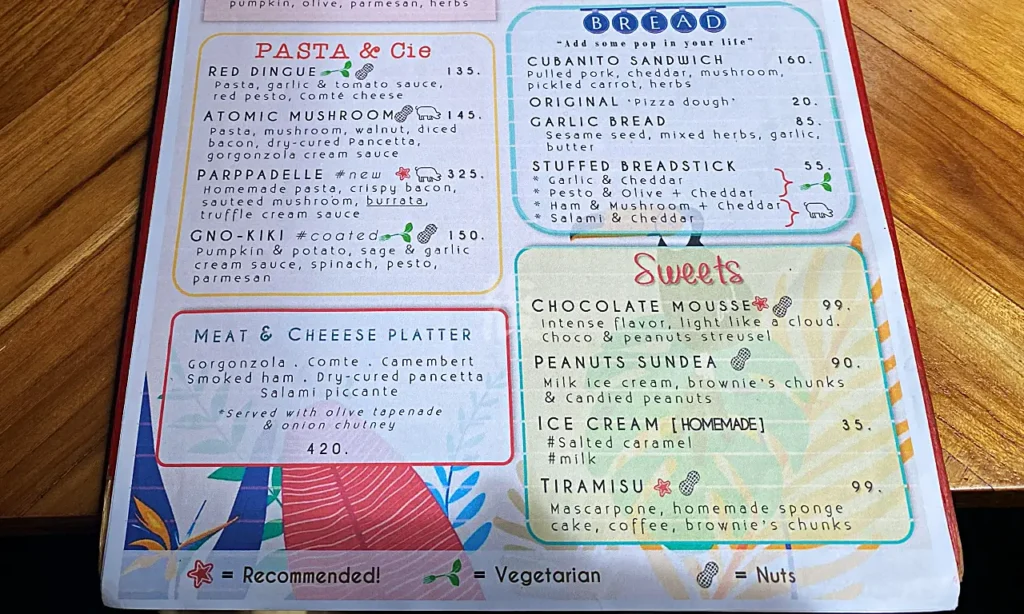 pumpkin, olive, parmesan, herbs
PASTA & Cie
RED DINGUE 135.
Pasta, garlic & tomato sauce,
red pesto, Comté cheese
ATOMIC MUSHROOM 145.
Pasta, mushroom, walnut, diced
bacon, dry-cured Pancetta,
gorgonzola cream sauce
PARPPADELLE #new 325.
Homemade pasta, crispy bacon,
sauteed mushroom, burrata,
truffle cream sauce
GNO-KIKI #coated 150.
Pumpkin & potato, sage & garlic
cream sauce, spinach, pesto,
parmesan
MEAT & CHEEESE PLATTER
Gorgonzola . Comte . Camembert
Smoked ham . Dry-cured pancetta
Salami piccante
*Served with olive tapenade
& onion chutney
420.
BREAD
"Add some pop in your life"
CUBANITO SANDWICH 160.
Pulled pork, cheddar, mushroom,
pickled carrot, herbs
ORIGINAL 'Pizza dough' 20.
GARLIC BREAD 85.
Sesame seed, mixed herbs, garlic,
butter
STUFFED BREADSTICK 55.
* Garlic & Cheddar
* Pesto & Olive + Cheddar
* Ham & Mushroom + Cheddar
* Salami & Cheddar
Sweets
CHOCOLATE MOUSSE 99.
Intense flavor, light like a cloud.
Choco & peanuts streusel
PEANUTS SUNDEA 90.
Milk ice cream, brownie's chunks
& Candied peanuts
ICE CREAM [HOMEMADE] 35.
#Salted caramel
#milk
TIRAMISU 99.
Mascarpone, homemade sponge
cake, coffee, brownie's chunks
= Recommended! = Vegetarian = Nuts